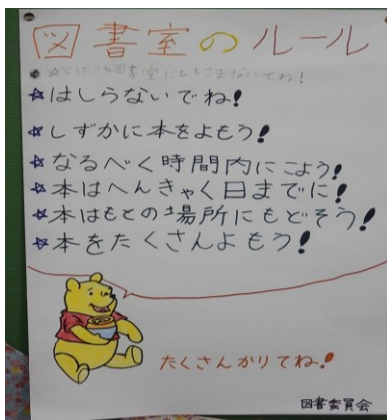 図書室のルール
図書室にもちこまないでね!
☆はしらないでね!
☆しずかに本をよもう!
☆なるべく時間内にこよう!
☆本はへんきゃく日までに!
☆本はもとの場所にもどそう!
☆本をたくさんよもう!
たくさんかりてね!
図書委員会